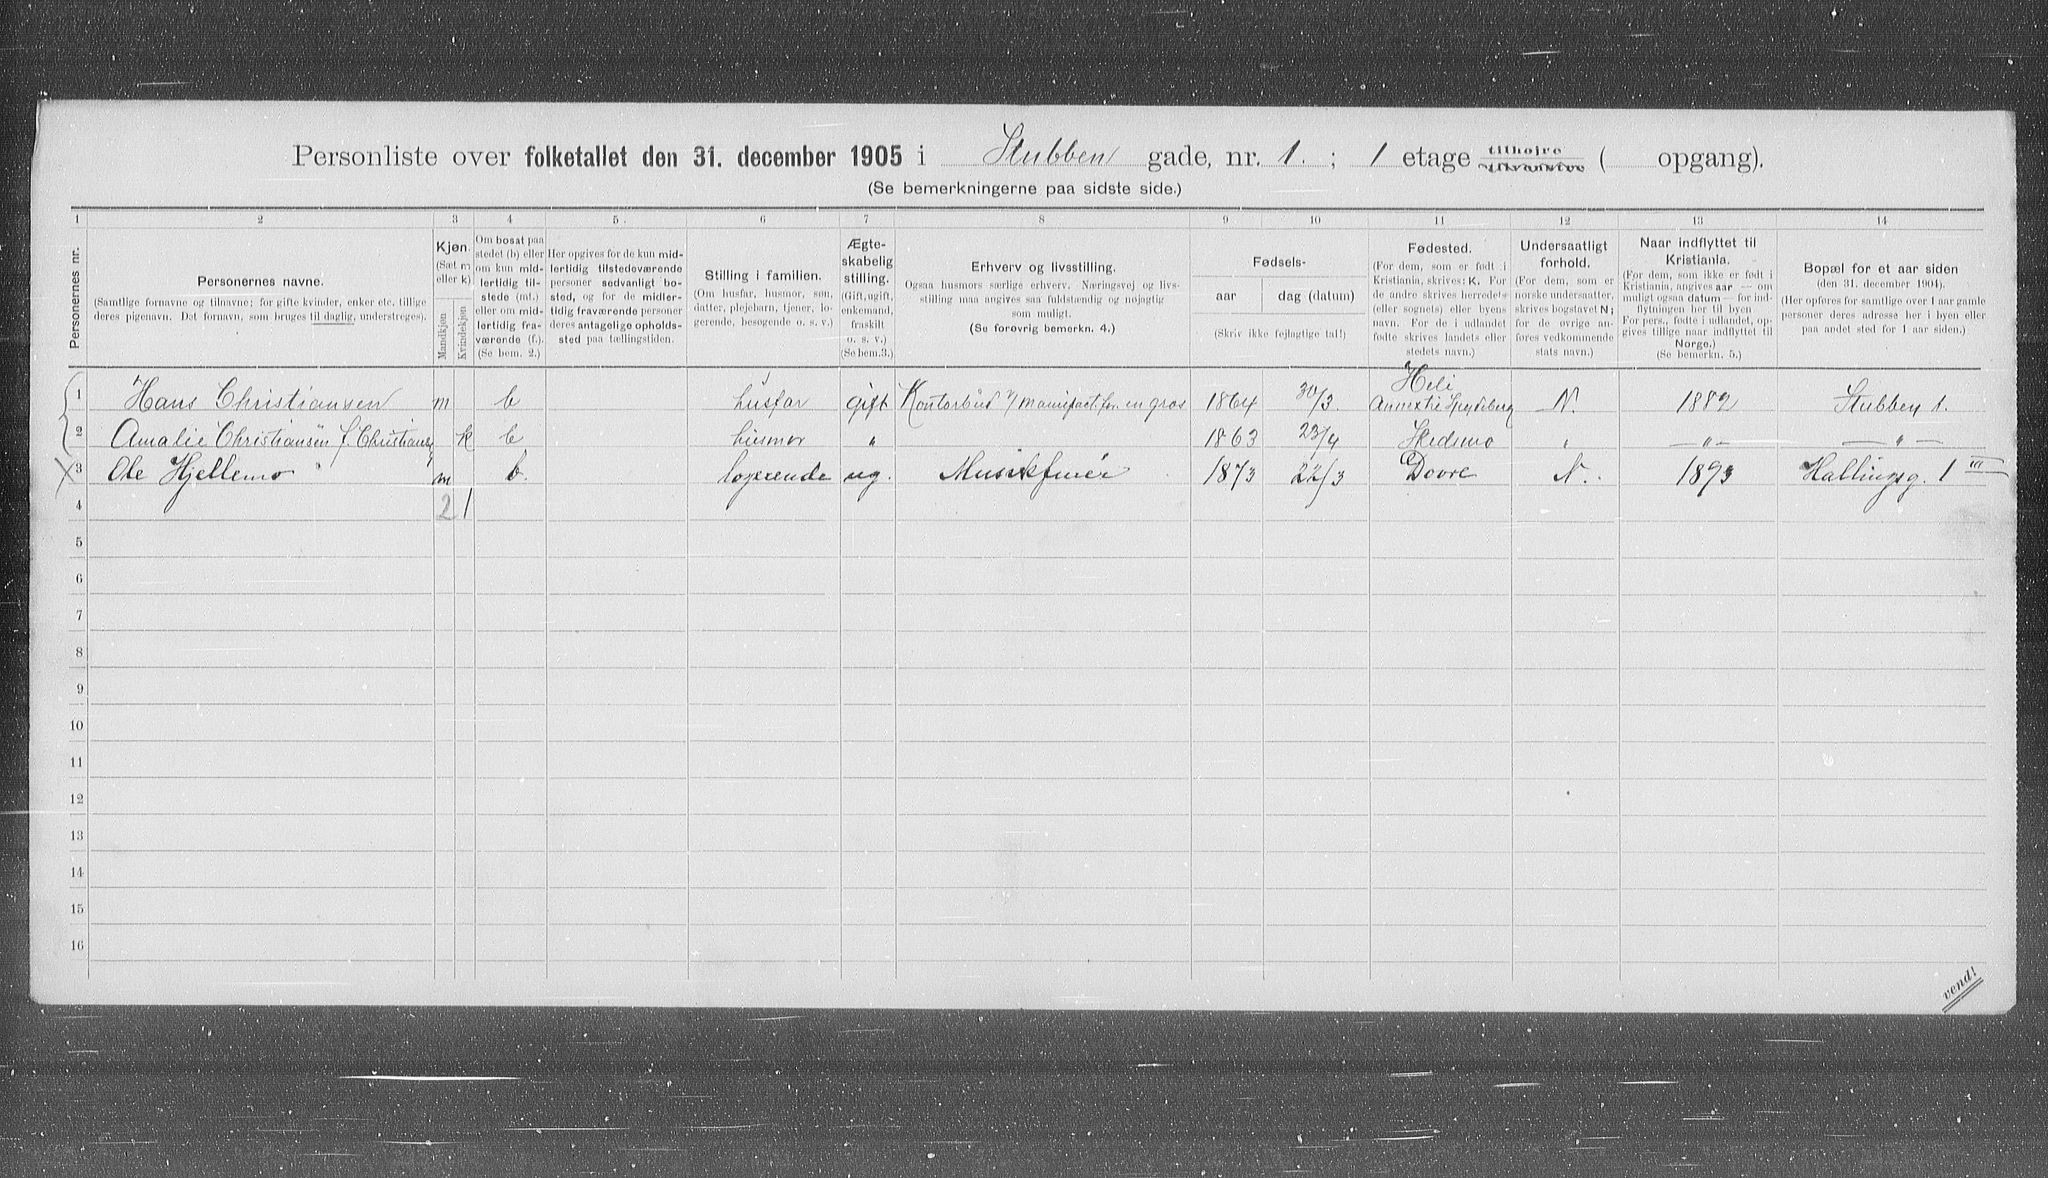 Personliste over folketallet den 31. december 1905 i Stubben gade, nr. 1. ; 1 etage tilhøjre tilvenstre ( opgang).
(Se bemerkningerne paa sidste side.)
1 2 3 4 5. 6 7 8 9 10 11 12 13 14
Personernes nr.
Personernes navne.
(Samtlige fornavne og tilnavne; for gifte kvinder, enker etc. tillige
deres pigenavn. Det fornavn, som bruges til daglig, understreges).
Kjøn.
(Sæt m
eller k).
Mandkjøn
Kvindekjøn
Om bosat paa
stedet (b) eller
om kun mid-
lertidig til-
stede (mt.)
eller om mid-
lertidig fra-
værende (f.).
(Se bem. 2.)
Her opgives for de kun mid-
lertidig tilstedeværende
personer sedvanligt bo-
sted, og for de midler-
tidig fraværende personer
deres antagelige opholds-
sted paa tællingstiden.
Stilling i familien.
(Om husfar, husmor, søn,
datter, plejebarn, tjener, lo-
gerende, besøgende o. s. v.)
Ægte-
skabelig
stilling.
(Gift, ugift,
enkemand,
fraskilt
o. s. v.)
(Se bem. 3.)
Erhverv og livsstilling.
Ogsaa husmors særlige erhverv. Næringsvej og livs-
stilling maa angives saa fuldstændig og nøjagtig
som muligt.
(Se forøvrig bemerkn. 4.)
Fødsels-
aar
dag (datum)
(Skriv ikke fejlagtige tal!)
Fødested.
(For dem, som er født i
Kristiania, skrives: K. For
de andre skrives herredets
(eller sognets) eller byens
navn. For de i udlandet
fødte skrives landets eller
stedets navn.)
Undersaatligt
forhold.
(For dem, som er
norske undersaatter,
skrives bogstavet N;
for de øvrige an-
føres vedkommende
stats navn.)
Naar indflyttet til
Kristiania.
(For dem, som ikke er født i
Kristiania, angives aar — om
muligt ogsaa datum — for ind-
flytningen her til byen
For pers., fødte i udlandet, op-
gives tillige naar indflyttet til
Norge.)
(Se bemerkn. 5.)
Bopæl for et aar siden
(den 31. december 1904).
(Her opføres for samtlige over 1 aar gamle
personer deres adresse her i byen eller
paa andet sted for 1 aar siden.)
1 Hans Christiansen m b husfar gift Kontorbud v/ manufact.for. en gros 1864 30/3. Heli
Annex til Spydeberg N. 1882 Stubben 1.
2 Amalie Christiansen f. Christians k b husmor " 1863 23/4 Skedsmo " — " — — " —
3 Ole Hjellemo m b. logerende ug. 1873 22/3 Dovre N. 1893 Hallingsg. 1 III
4 2 1
5
6
7
8
9
10
11
12
13
14
15
16
vend!